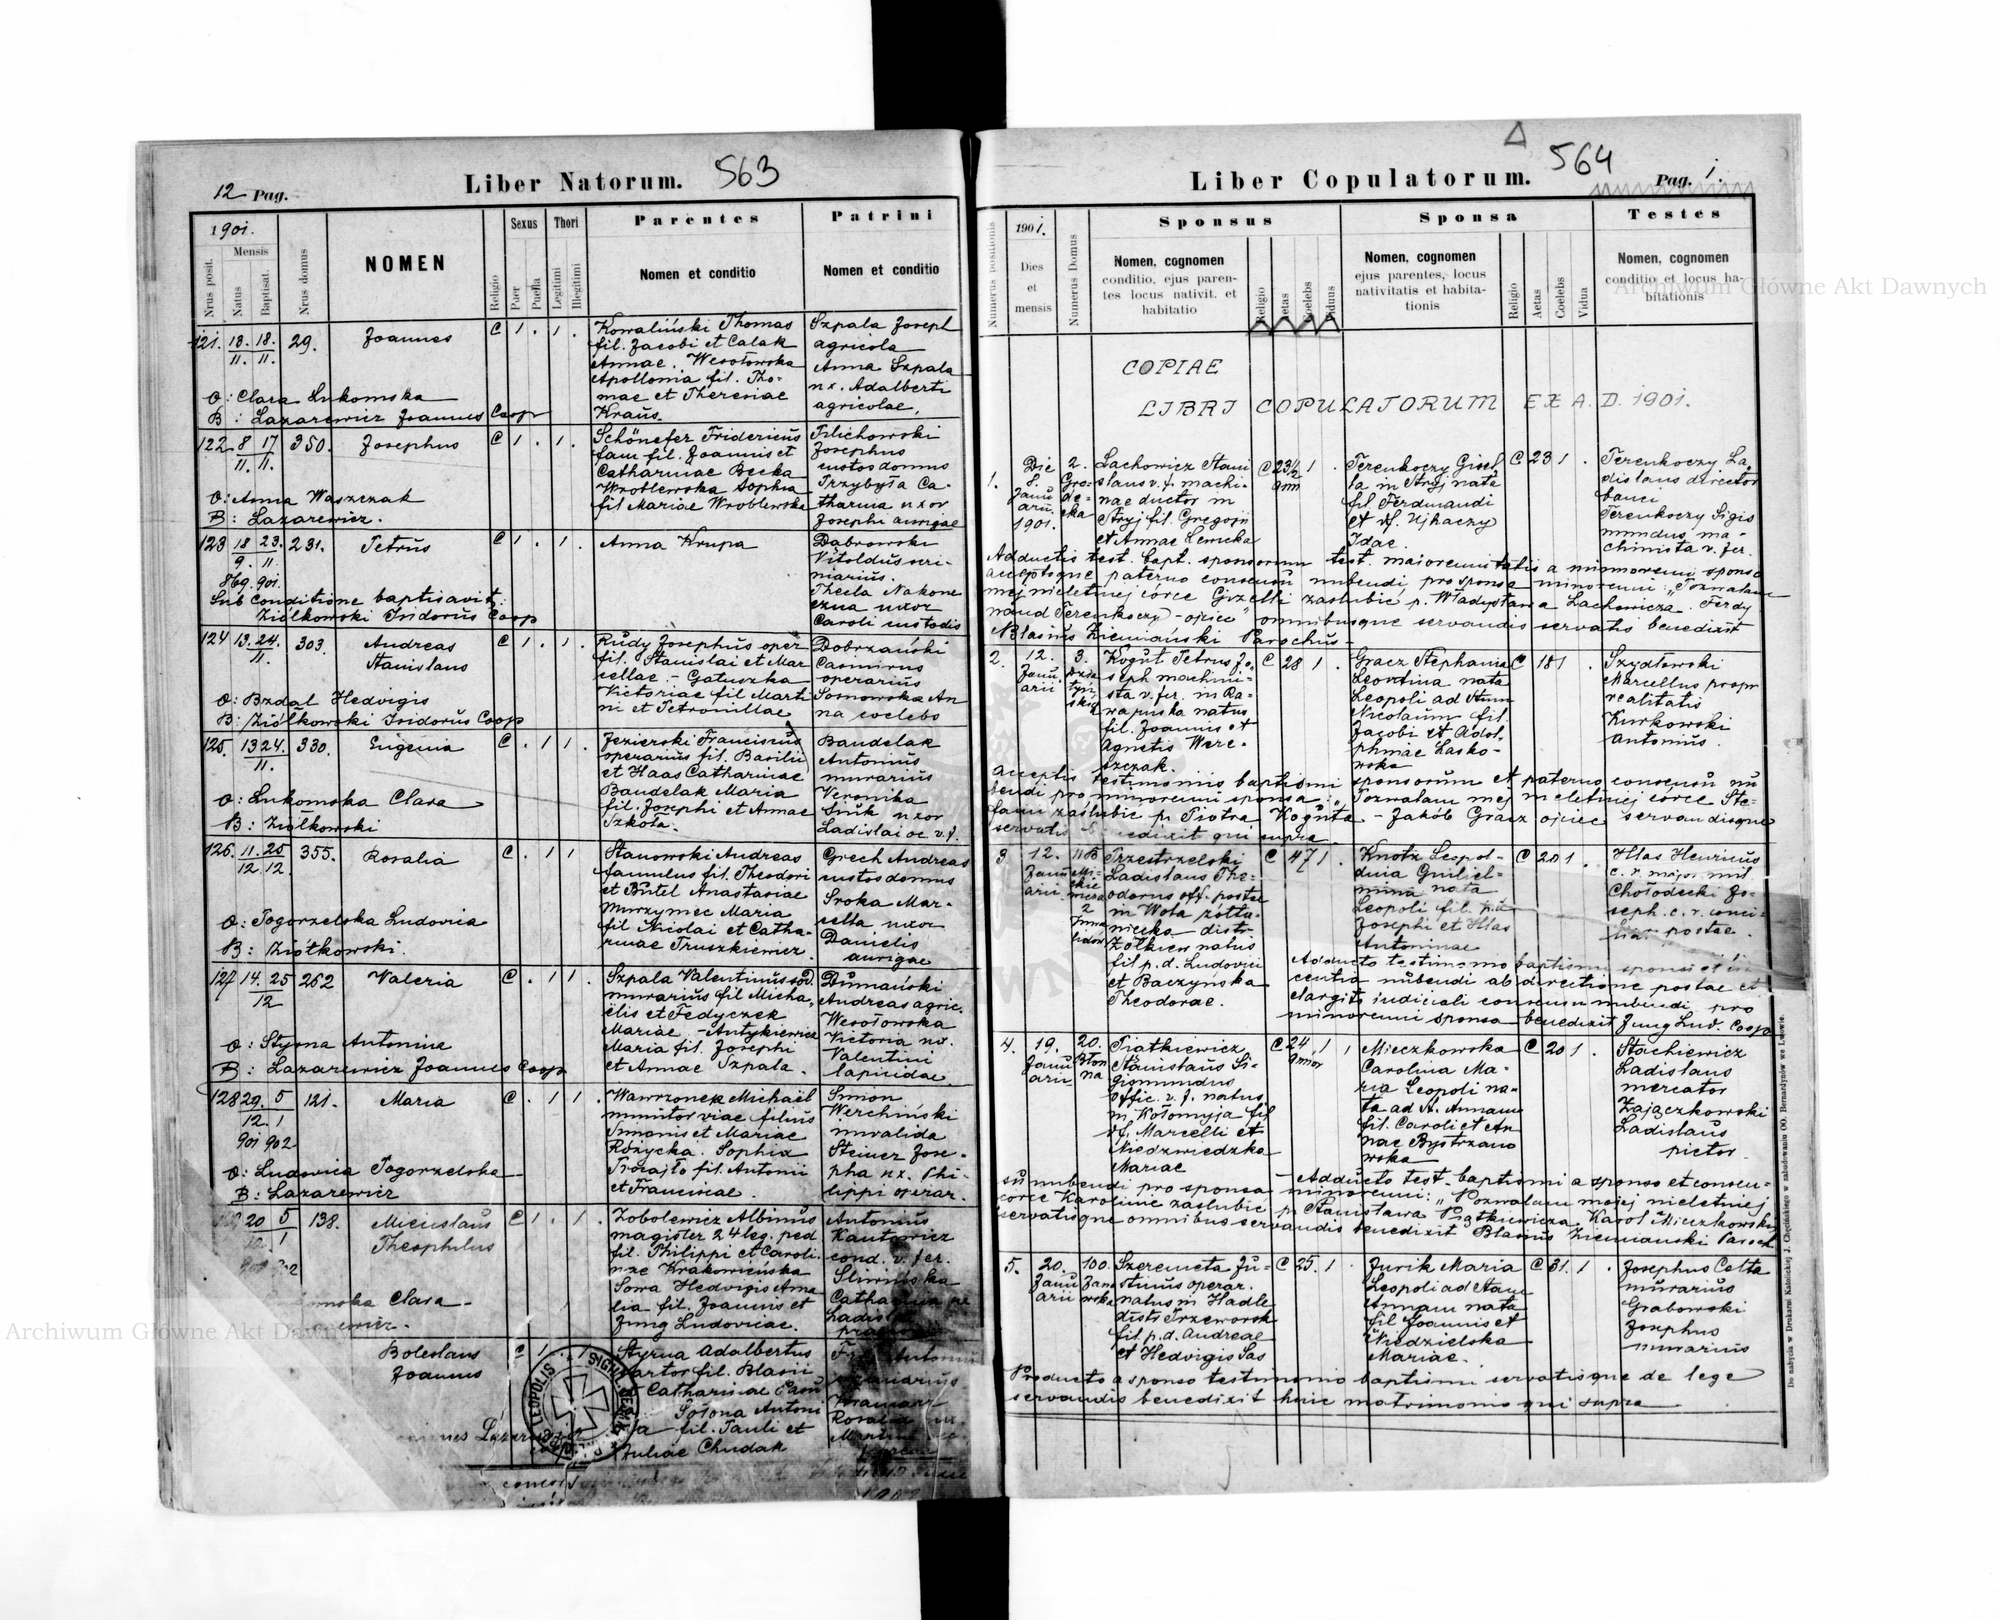 12 Pag.
Liber Natorum.
563
1901.
Nrus posit.
Mensis
Natus
Baptisat.
Nrus domus
NOMEN
Religio
Sexus
Puer
Puella
Thori
Legitimi
Illegitimi
Parentes
Nomen et conditio
Patrini
Nomen et conditio
121. 13. 18. 29. Joannes C 1 . 1 .
11. 11.
Kowaliński Thomas
fil. Jacobi et Calak
Annae. Wesołowska
Apollonia fil. Tho-
mae et Theresiae
Kraus.
Szpala Joseph
agricola
Anna Szpala
ux. Adalberti
agricolae.
O: Clara Lukomska
B: Lazarewicz Joannes Coop
122 8 17 350. Josephus C 1 . 1 .
11. 11.
Schönefer Fridericus
fam fil. Joannis et
Catharinae Becka
Wroblewska Sophia
fil Mariae Wroblewska
Pilichowski
Josephus
custos domus
Przybyła Ca-
tharina uxor
Josephi aurigae
O: Anna Waszczak
B: Lazarewicz.
123 18 23. 231. Petrus C 1 . 1 .
9. 11.
Anna Krupa
Dąbrowski
Vitoldus
Thecla Nakone
czna uxor
Caroli custodis
Sub conditione baptisavit:
Ziółkowski Isidorus Coop
124 13. 24. 303. Andreas C 1 . 1 .
11. Stanislaus
Rudy Josephus oper
fil. Stanislai et Mar
cellae. - Gatuszka
Victoriae fil Marti
ni et Petronillae
Dobrzański
Casimirus
operarius
Sosnowska An
na coelebs
O: Brzdal Hedvigis
B: Ziółkowski Isidorus Coop
125. 13 24. 330. Eugenia C . 1 1 .
11.
Jezierski Franciscus
operarius fil. Basilii
et Haas Catharinae
Baudelak Maria
fil. Josephi et Annae
Szkoła.
Baudelak
Antonius
murarius
Veronika
uxor
O: Lukomska Clara
B: Ziółkowski
126. 11. 25 355. Rosalia C . 1 1
12. 12.
Stanowski Andreas
famulus fil. Theodori
et Butel Anastasiae
Murzyniec Maria
fil Nicolai et Catha-
rinae Truszkiewicz.
Grech Andreas
custos domus
Sroka Mar-
cella uxor
Danielis
aurigae
O: Pogorzelska Ludovica
B: Ziółkowski.
127 14. 25 262 Valeria C . 1 1 .
12
Szpala Valentinus
murarius fil Micha-
ëlis et Fedyczek
Mariae. - Antykiewicz
Maria fil. Josephi
et Annae Szpala.
Dumański
Andreas agric.
Wesołowska
Victoria ux.
Valentini
lapicidae
O: Styrna Antonina
B: Lazarewicz Joannes Coop
128 29. 5 121. Maria C . 1 1 .
12. 1
901 902
Wawrzonek Michaël
munitor viae filius
Simonis et Mariae
Różycka. Sophia
fil. Antonii
et Franciscae.
Simon
Werchiński
invalida
Steiner Jose-
pha ux. Phi-
lippi operar.
O: Ludovica Pogorzelska
B: Lazarewicz
20 5 138. Miecislaus C 1 . 1 .
12. 1 Theophilus
Zobolewicz Albinus
magister 24 leg. ped
fil. Philippi et Caroli-
nae Krakowieńska
Sowa Hedvigis Ama
lia fil. Joannis et
Jung Ludovicae.
Antonius
Kantowicz
cond. v. fer.
Śliwińska
Clara -
Boleslaus C 1 . . 1
Joannes
Styrna Adalbertus
sartor fil. Blasii
Catharinae
Antoni
fil. Pauli et
Juliae Chudak
Liber Copulatorum.
564
Pag. 1.
Numerus positionis
1901.
Dies
et
mensis
Numerus Domus
Sponsus
Nomen, cognomen
conditio, ejus paren-
tes locus nativit. et
habitatio
Religio
Aetas
Coelebs
Viduus
Sponsa
Nomen, cognomen
ejus parentes, locus
nativitatis et habita-
tionis
Religio
Aetas
Coelebs
Vidua
Testes
Nomen, cognomen
conditio et locus ha-
bitationis
COPIAE
LIBRI COPULATORUM EX A. D. 1901.
1.
Die
8.
Janu
arii
1901.
2.
Gro-
de-
cka
Lachowicz Stani
slaus v. f. machi-
nae ductor in
Stryj fil. Gregorii
et Annae Lewicka
C 23½ 1 .
Terenkoczy Gisel
la in Stryj nata
fil Ferdinandi
et Ujhaczy
Idae.
C 23 1 .
Terenkoczy La-
dislaus director
banci
Terenkoczy Sigis
mundus ma-
chinista v. fer.
Adductis test. bapt. sponsorum test. maiorennitatis a minorenni sponso
acceptoque paterno consensu nubendi, pro sponsa minorenni: „Pozwalam
mej nieletniej córce Gizelli zaślubić p. Władysława Lachowicza. Ferdy
nand Terenkoczy - ojciec" omnibusque servandis servatis benedixit
Blasius Ziemiański Parochus -
2.
12.
Janu
arii
3.
Kogut Petrus Jo-
seph machini-
sta v. fer. in Ra-
wa ruska natus
fil. Joannis et
Agnetis Were-
szczak.
C 28 1 .
Gracz Stephania
Leontina nata
Leopoli ad Stum
Nicolaum fil.
Jacobi et Adol-
phinae Lasko-
wska
C 18 1 .
Szydłowski
Marcellus propr
realitatis
Kurkowski
Antonius.
Acceptis testimoniis baptismi sponsorum et paterno consensu nu
bendi pro minorenni sponsa: „Pozwalam mej nieletniej córce Ste-
fanii zaślubić p. Piotra Koguta - Jakób Gracz ojciec servandisque
servatis benedixit qui supra
3
12.
Janu
arii
Przestrzelski
Ladislaus The-
odorus off. postae
in Wola żółta-
niecka distr
Żółkiew natus
fil p. d. Ludovici
et Baczyńska
Theodorae.
C 47 1 .
Knotz Leopol-
dina Guiliel-
mina nata
Leopoli fil. p. d.
Josephi et Hlas
Antoninae
C 20 1 .
Hlas Henricus
c. r. major mil
Chołodecki Jo-
seph. c. r. consi-
liar. postae.
Adducto testimonio baptismi sponsi et li-
centia nubendi ab directione postae et
elargito iudiciali consensu nubendi pro
minorenni sponsa benedixit Jung Lud. Coop
4.
19.
Janu
arii
20.
Błon
na
Piatkiewicz
Stanislaus Si-
gismundus
offic. v. f. natus
in Kołomyja fil
v. f. Marcelli et
Niedzwiedzka
Mariae
C 24 1 .
Mieczkowska
Carolina Ma-
ria Leopoli na-
ta ad S. Annam
fil. Caroli et An
nae Bystrzano
wska
C 20 1 .
Stachiewicz
Ladislaus
mercator
Zajączkowski
Ladislaus
pictor.
- Adducto test. baptismi a sponso et consen-
su nubendi pro sponsa minorenni: „Pozwalam mojej nieletniej
córce Karolinie zaślubić p. Stanisława Piątkiewicza, Karol Mieczkowski
servatisque omnibus servandis benedixit Blasius Ziemiański Paroch
5.
20.
Janu
arii
100.
Jano
wska
Szeremeta Ju-
stinus operar.
natus in Hadle
distr Przeworsk
fil. p. d. Andreae
et Hedvigis Sas
C 25. 1 .
Jurik Maria
Leopoli ad Stam
Annam nata
fil Joannis et
Niedzielska
Mariae.
C 31. 1 .
Josephus Celta
murarius
Grabowski
Josephus
murarius
Producto a sponso testimonio baptismi servatisque de lege
servandis benedixit huic matrimonio qui supra
Do nabycia w Drukarni Katolickiej J. Chęcińskiego w zabudowaniu OO. Bernardynów we Lwowie.
Archiwum Główne Akt Dawnych
Archiwum Główne Akt Dawnych